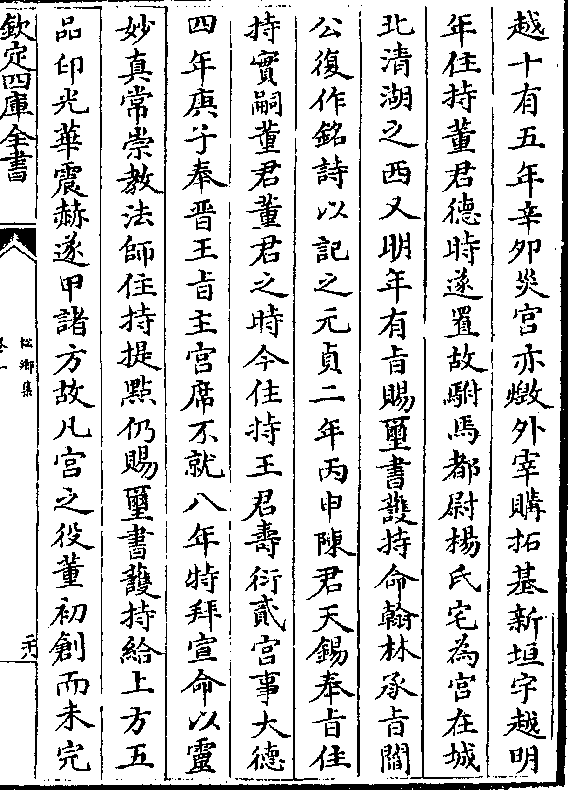 越十有五年辛卯災宫亦燬外宰購拓基新垣宇越明
年住持董君德時遂置故駙馬都尉楊氏宅為宫在城
北清湖之西又明年有㫖賜璽書護持命翰林承㫖閻
公復作銘詩以記之元貞二年丙申陳君天錫奉㫖住
持實嗣董君董君之時今住持王君壽衍貳宫事大德
四年庚子奉晋王㫖主宫席不就八年特拜宣命以靈
妙真常崇教法師住持提點仍賜璽書護持給上方五
品印光華震赫遂甲諸方故凡宫之役董初創而未完
欽定四庫全書
松鄉集
卷一